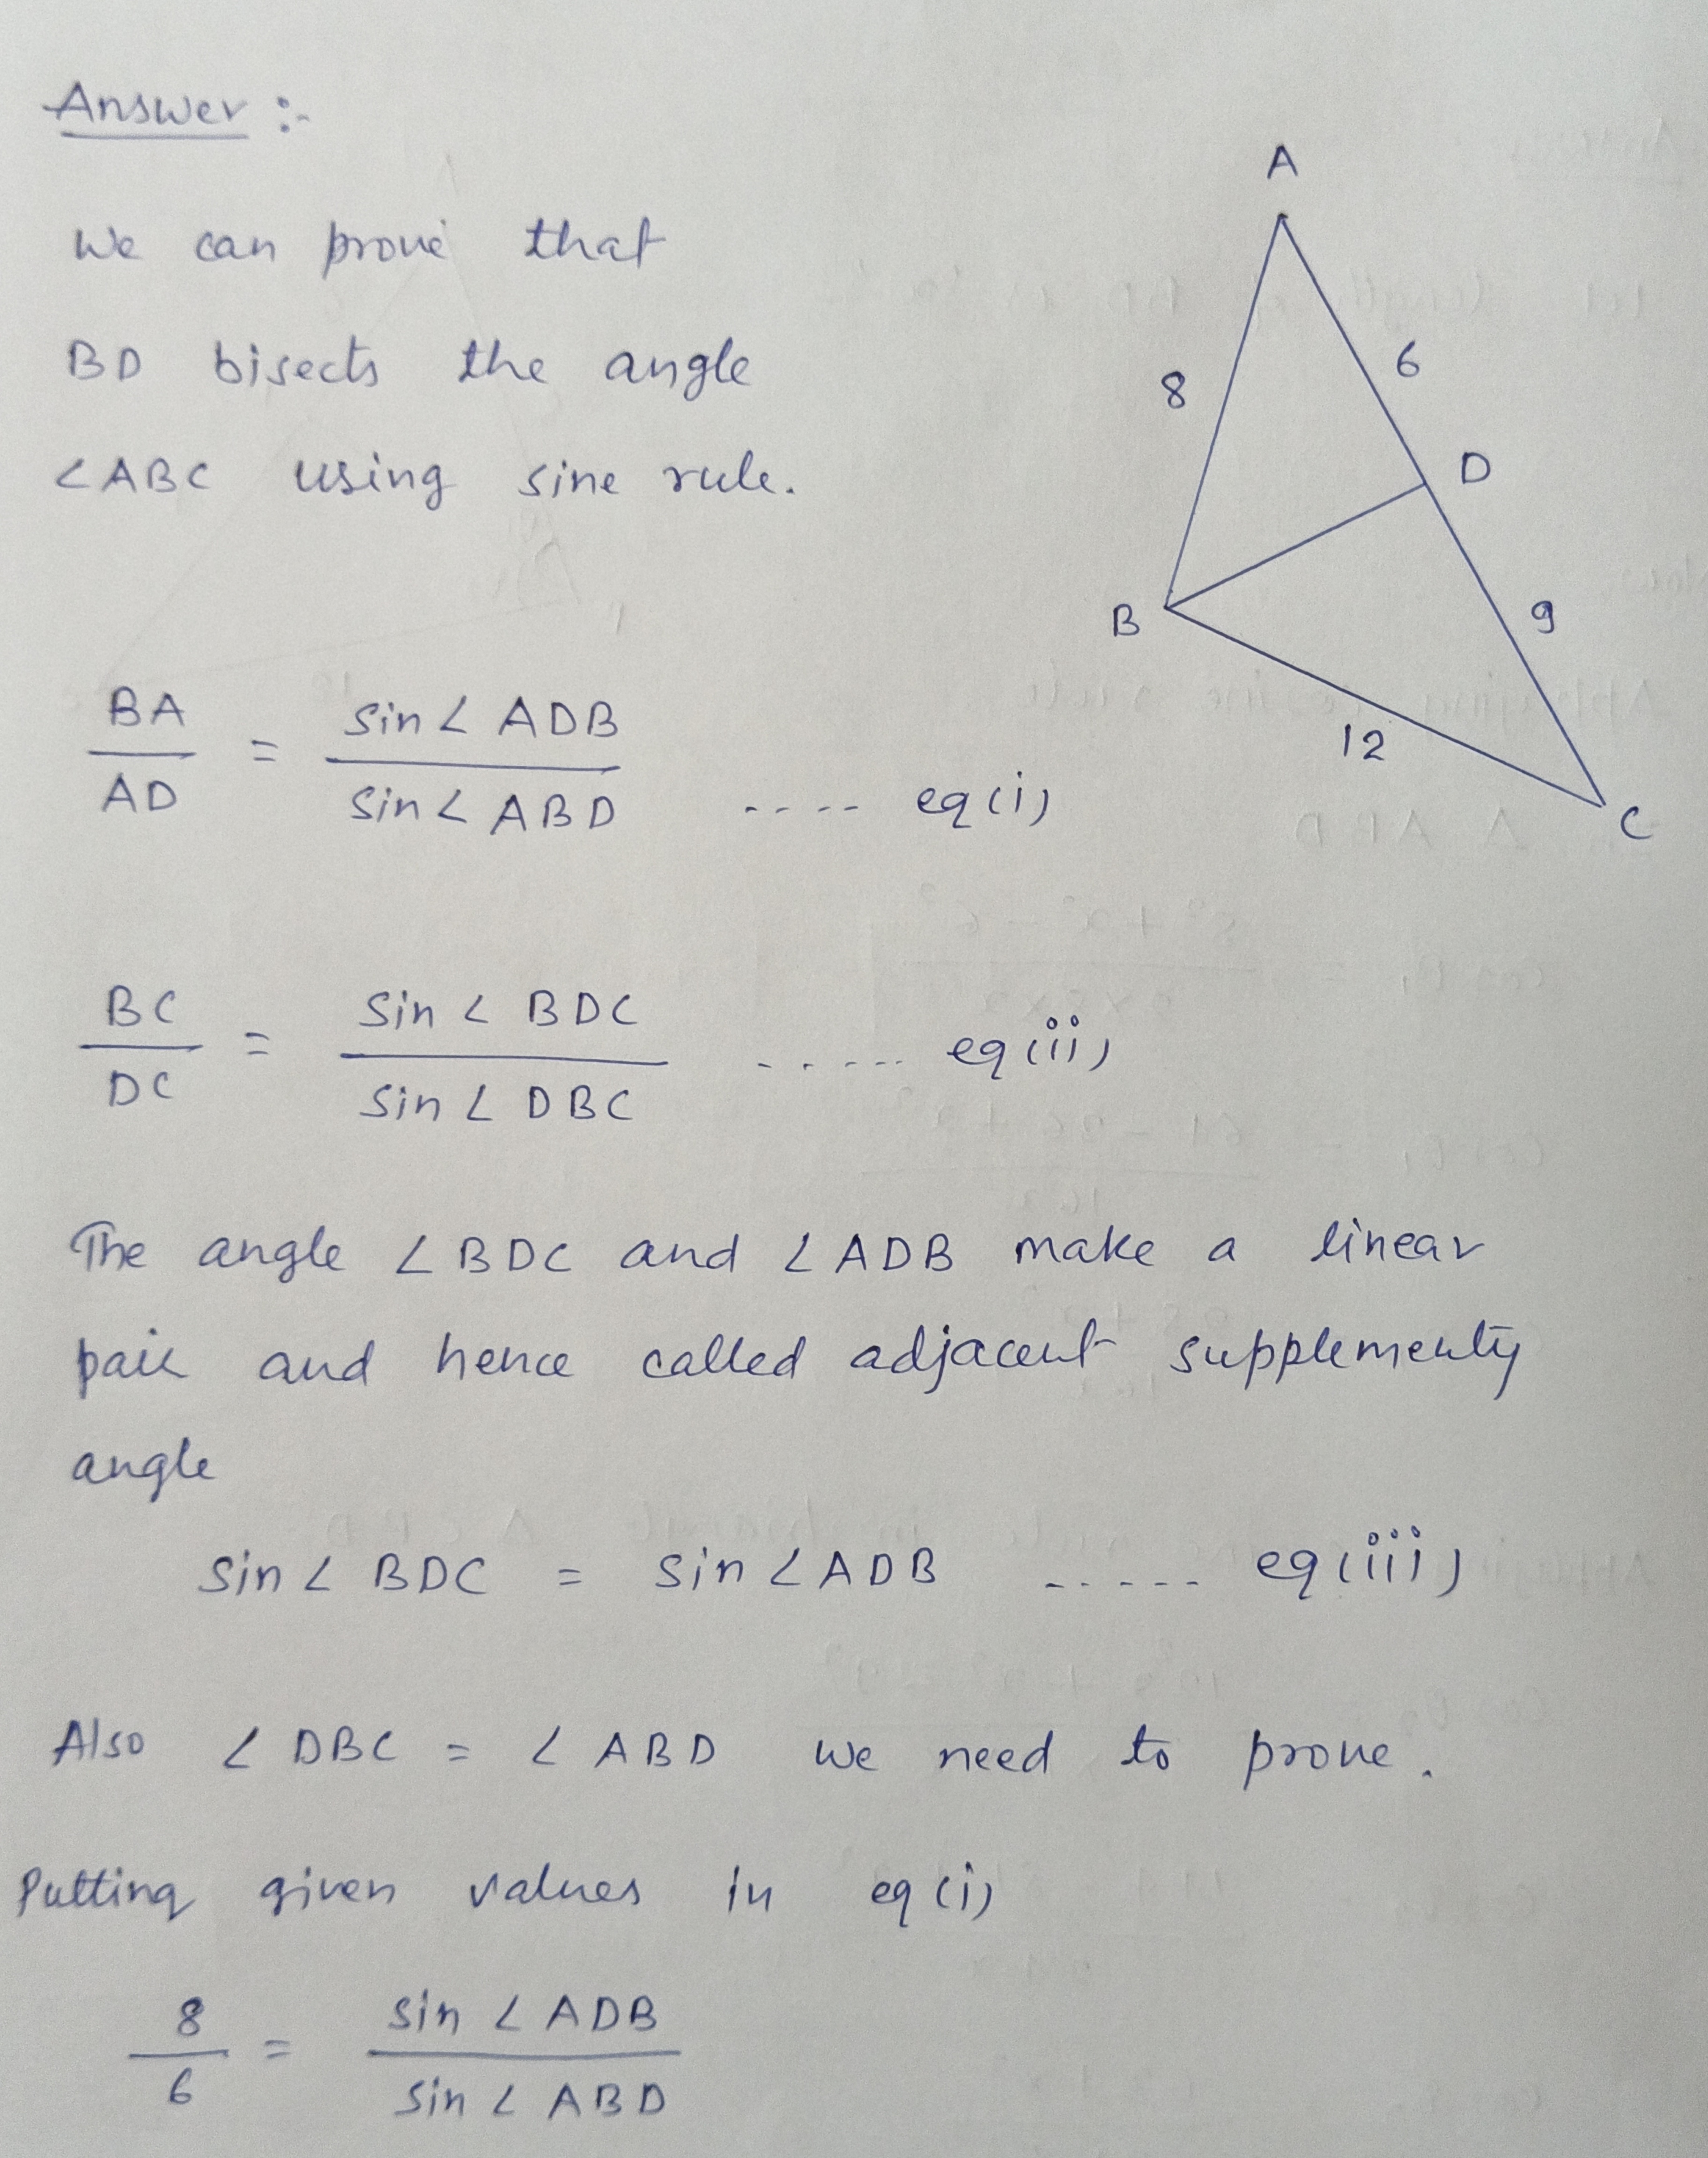 Answer :-
We can prove that
BD bisects the angle
∠ABC using sine rule.
A
8
6
D
B
9
12
C
BA/AD = sin∠ADB/sin∠ABD .... eq(i)
BC/DC = sin∠BDC/sin∠DBC ..... eq(ii)
The angle ∠BDC and ∠ADB make a linear
pair and hence called adjacent supplementy
angle
sin∠BDC = sin∠ADB ..... eq(iii)
Also ∠DBC = ∠ABD we need to prove.
Putting given values in eq(i)
8/6 = sin∠ADB/sin∠ABD